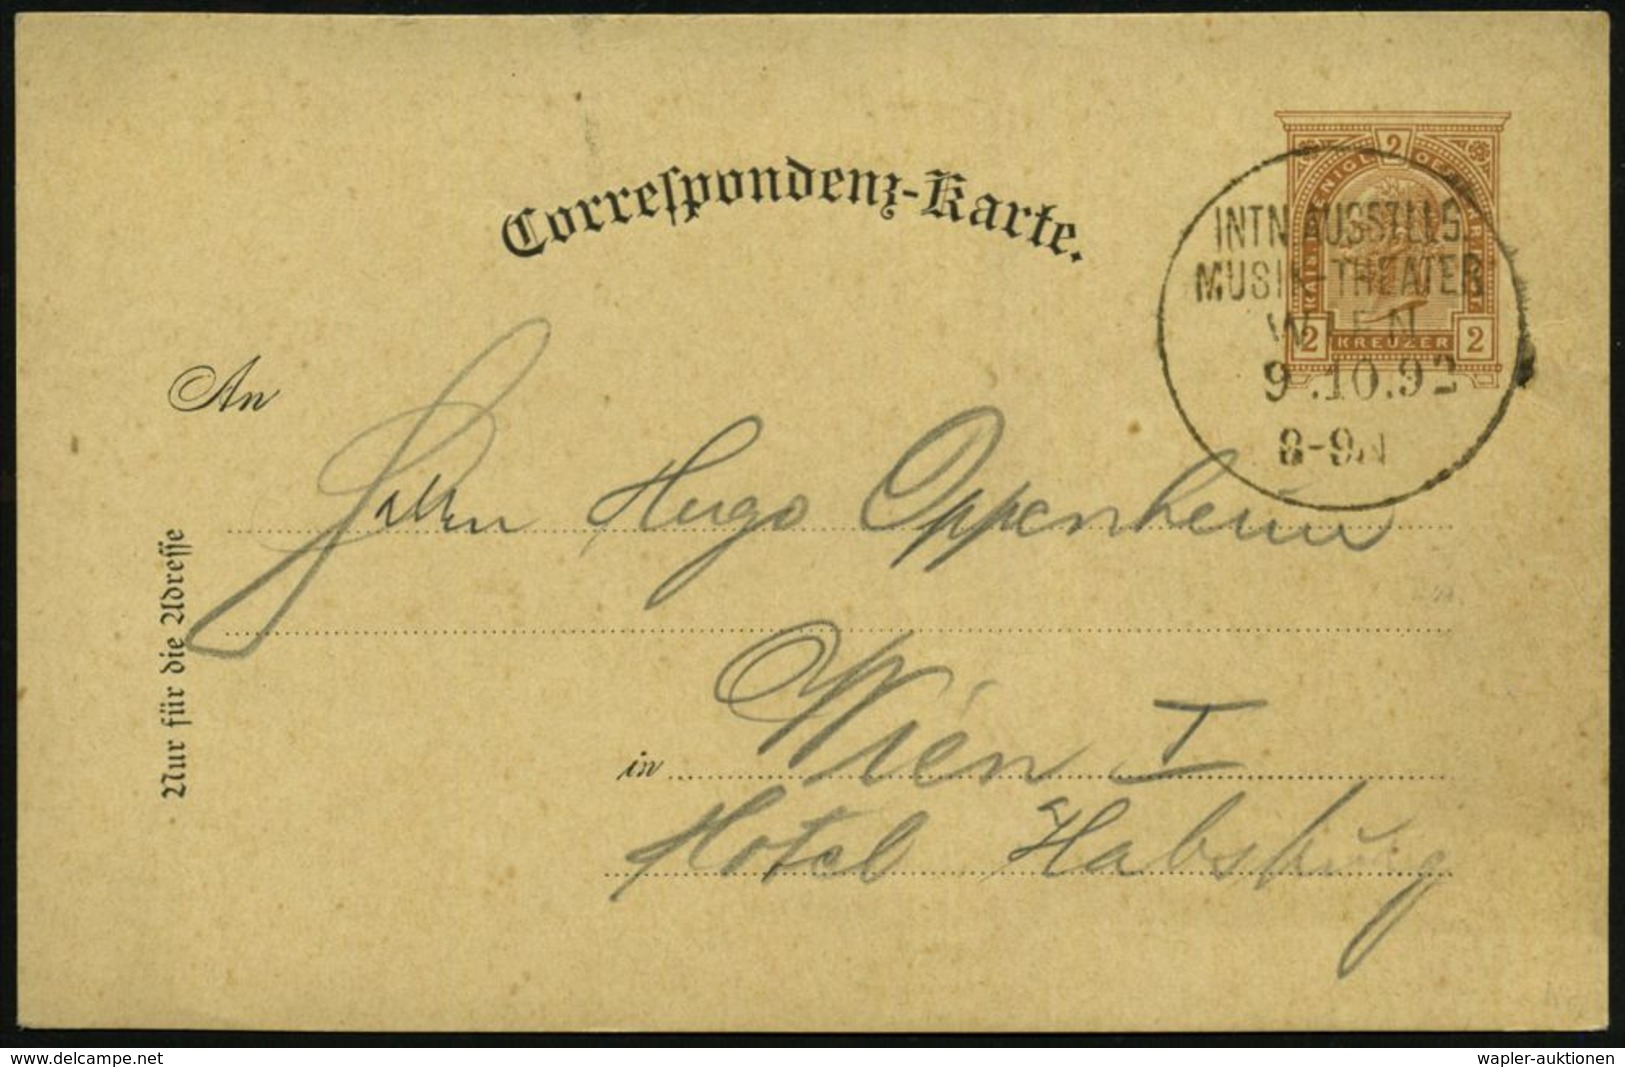 Correspondenz-Karte.
2
KAIS. KOENIGL. OESTERR. POST
INTN. AUSSTLLG.
MUSIK-THEATER
WIEN
2 KREUZER 2
9.10.92
8-9N
An
Herrn Hugo Oppenheim
Nur für die Adresse
in Wien I
Hotel Habsburg
www.delcampe.net
wapler-auktionen